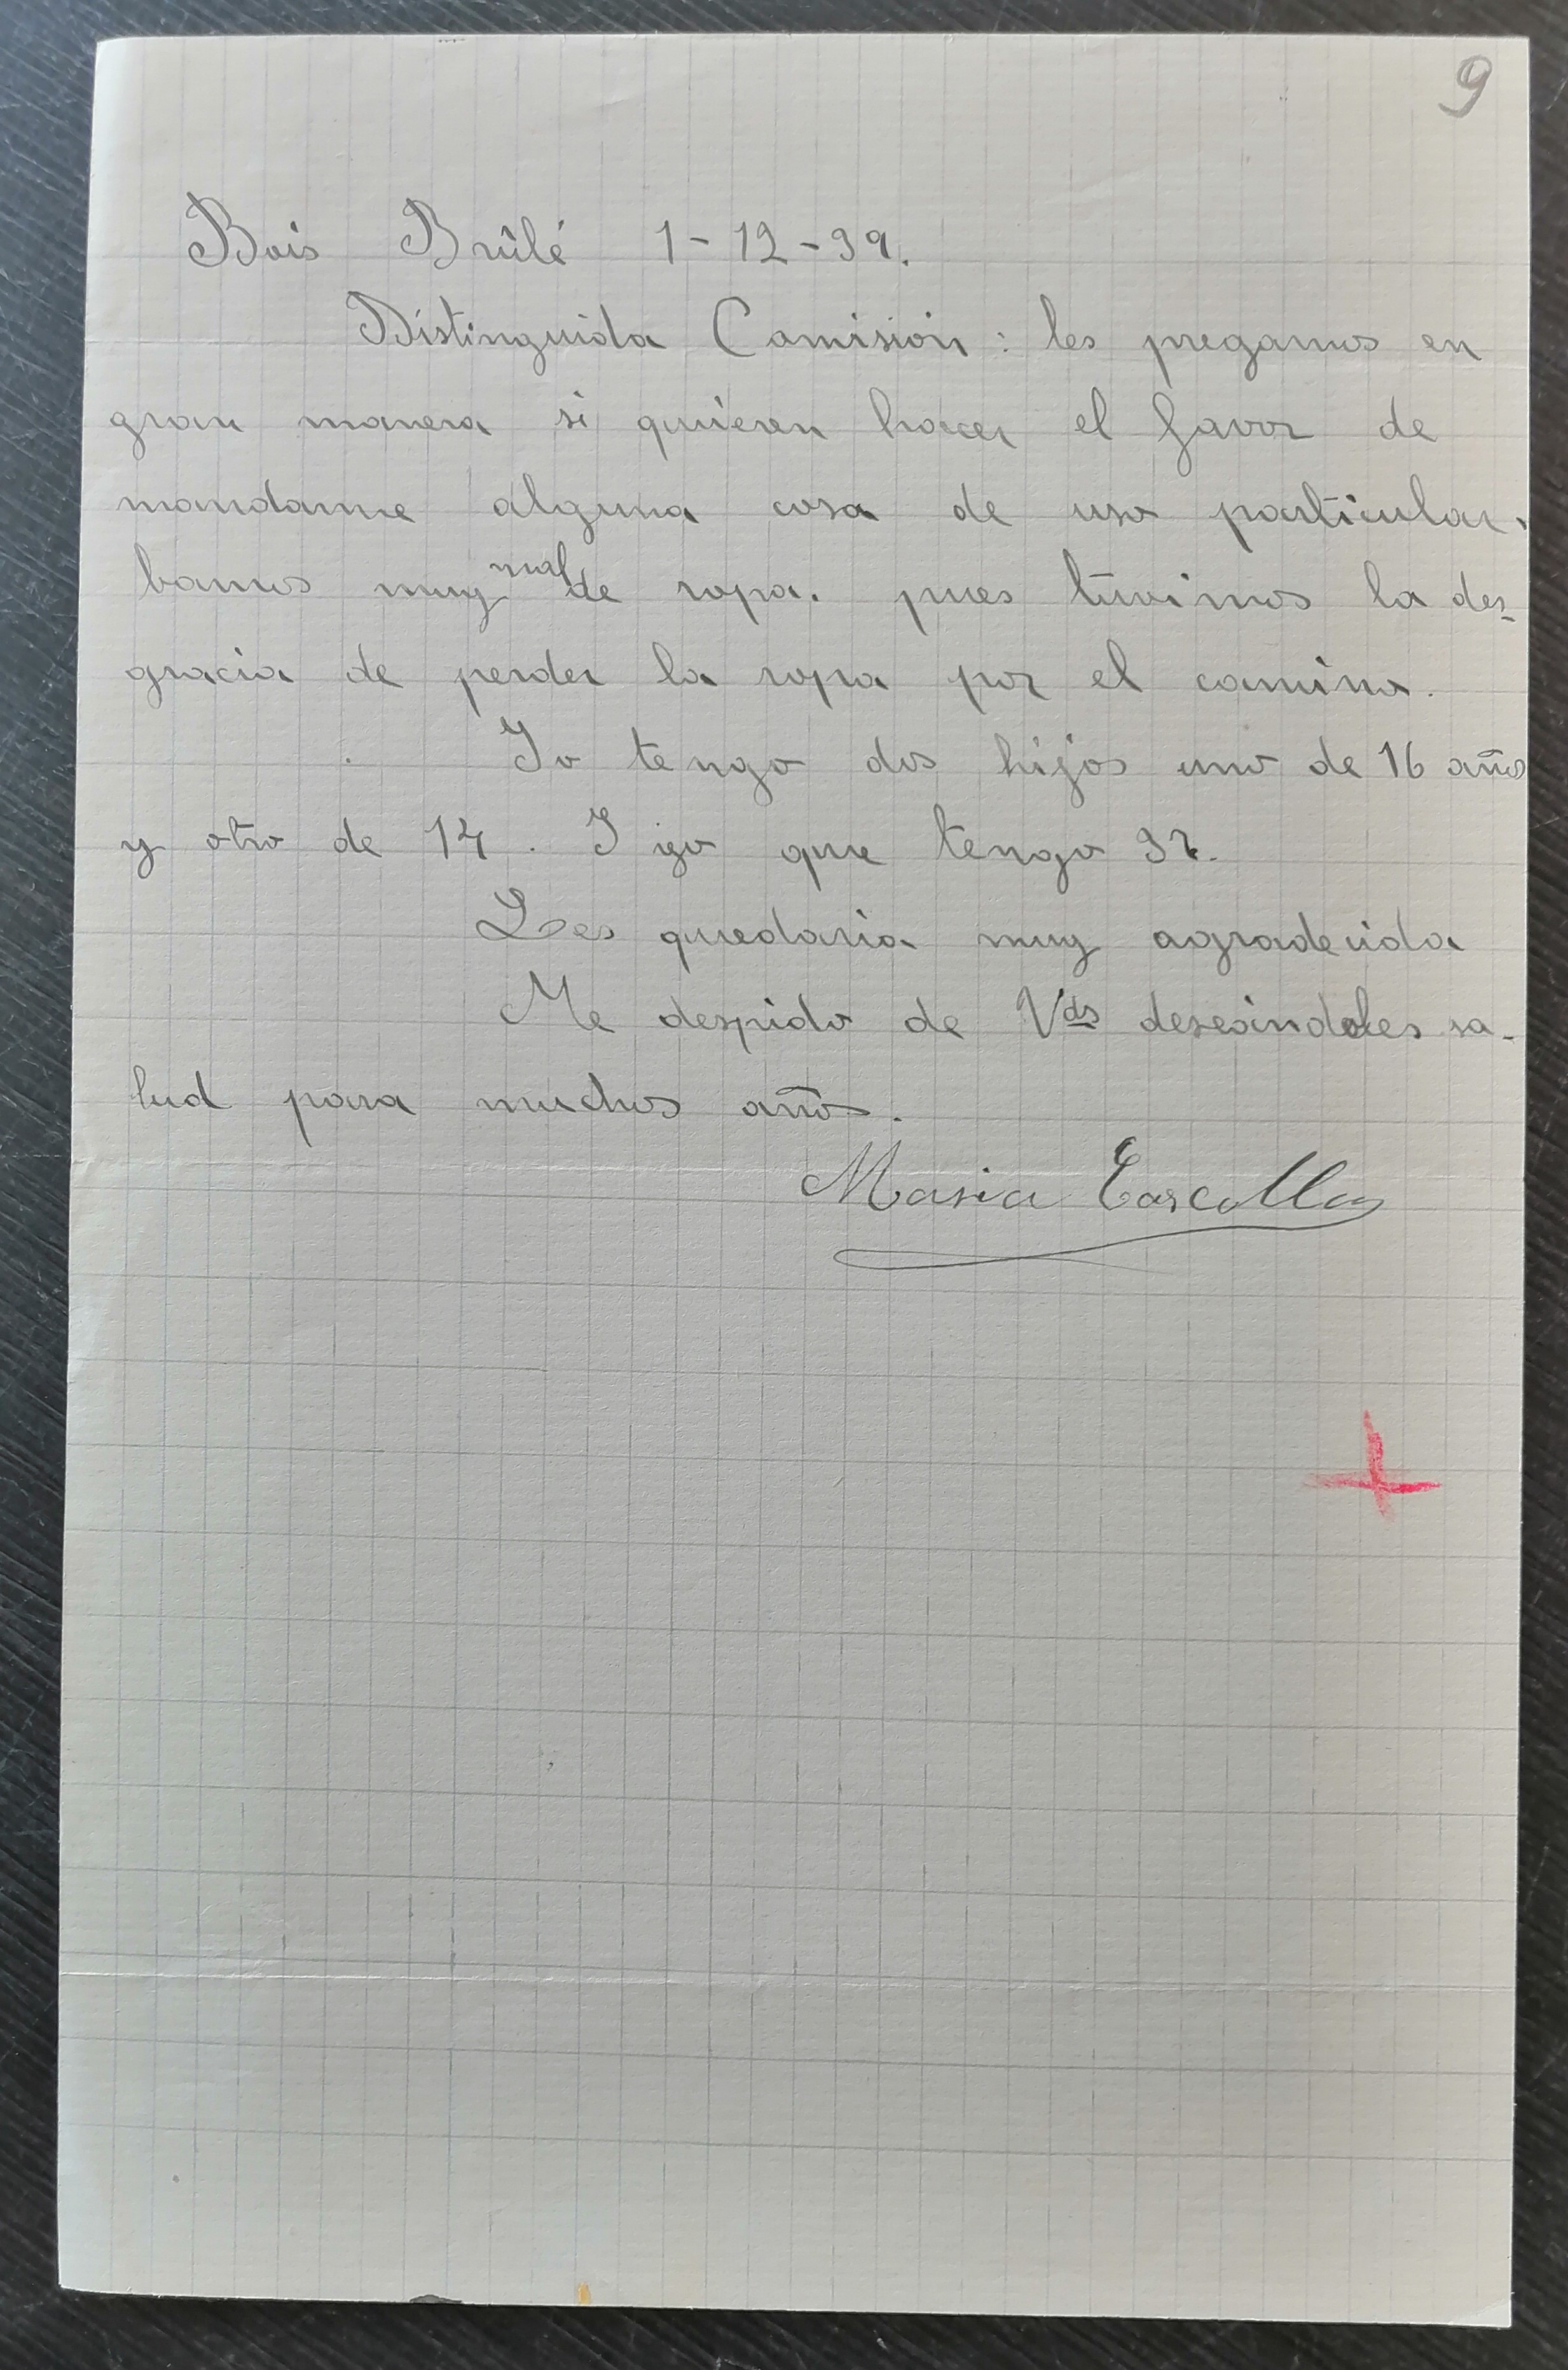 9
Bois Brûlé 1-12-39.
Distinguida Comisión: les pregamos en
gran manera si quieren hacer el favor de
mandarme alguna cosa de uso particular.
bamos muy mal de ropa. pues tuvimos la des-
gracia de perder la ropa por el camino.
Yo tengo dos hijos uno de 16 años
y otro de 14. I yo que tengo
Les quedaria muy agradecida
Me despido de Vds deseándoles sa-
lud para muchos años.
Maria